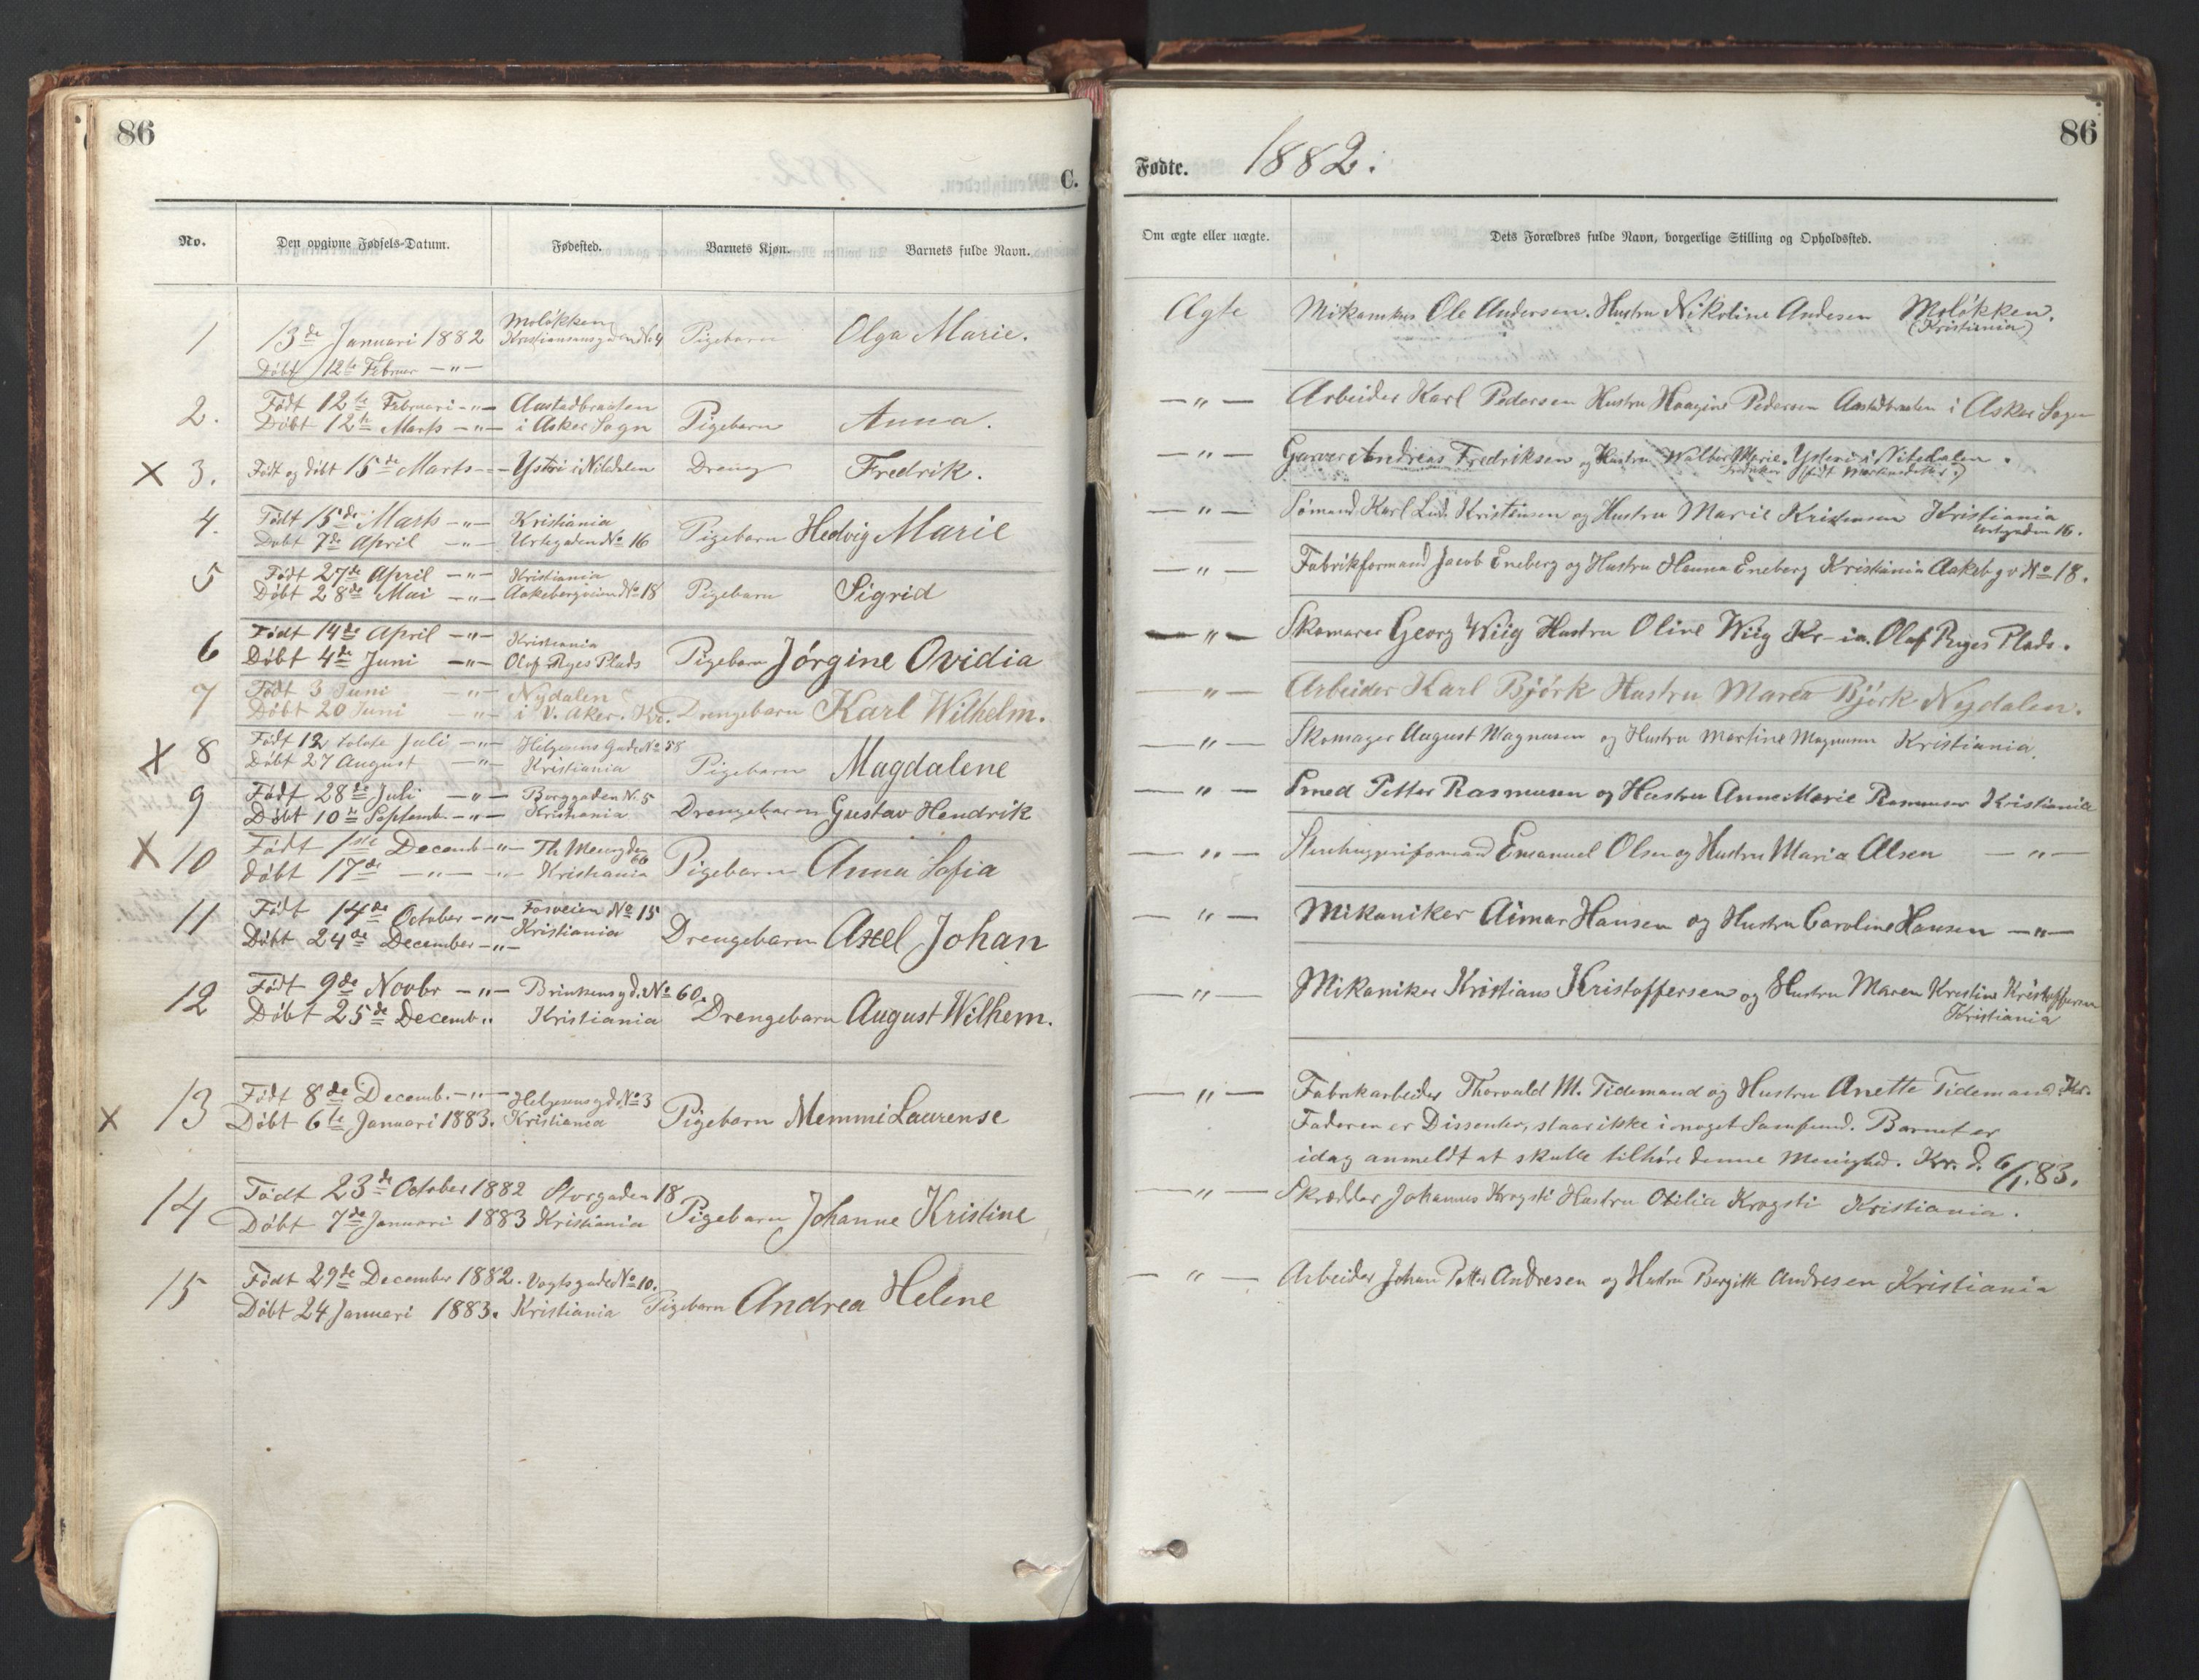 86
C.
No.
Den opgivne Fødsels-Datum.
Fødested.
Barnets Kjøn.
Barnets fulde Navn.
1
Moløkken
13de Januari 1882 Kristiansansgaden No 4 Pigebarn Olga Marie.
Døbt 12te Februar —"—
2. Født 12te Februari —"— Aastadbraaten
Døbt 12te Marts —"— i Asker Sogn Pigebarn Anna.
X 3. Født og døbt 15de Marts —"— Ysteri i Nitedalen Dreng Fredrik.
4. Født 15de Marts —"— Kristiania
Døbt 7de April —"— Urtegaden No 16 Pigebarn Hedvig Marie
5 Født 27de April —"— Kristiania
Døbt 28de Mai —"— Aakebergveien No 18 Pigebarn Sigrid
6 Født 14de April —"— Kristiania
Døbt 4de Juni —"— Olaf Ryes Plads Pigebarn Jörgine Ovidia
7 Født 3 Juni —"— Nydalen
Døbt 20 Juni —"— i V. Aker. Kr. Drengebarn Karl Wilhelm.
X 8 Født 12 tolvte Juli —"— Helgesens Gade No 58
Døbt 27 August —"— Kristiania Pigebarn Magdalene
9 Født 28de Juli —"— Borggaden N. 5
Døbt 10de Septemb. —"— Kristiania Drengebarn Gustav Hendrik
X 10 Født 1ste Decemb —"— Th. Meiergden 60
døbt 17de —"— —"— Kristiania Pigebarn Anna Sofia
11 Født 14de October —"— Fosveien No 15
Døbt 24de December —"— Kristiania Drengebarn Axel Johan
12 Født 9de Novbr —"— Brinkensgd. No 60.
Døbt 25de Decemb. " Kristiania Drengebarn August Wilhem.
X 13 Født 8de Decemb. —"— Helgesensgd. No 3
Døbt 6te Januari 1883. Kristiania Pigebarn Memmi Laurense
14 Født 23de October 1882 Storgaden 18
Døbt 7de Januari 1883 Kristiania Pigebarn Johanne Kristine
15 Födt 29de December 1882. Vogtsgade No 10.
Døbt 24 Januari 1883. Kristiania Pigebarn Andrea Helene
86
Fødte. 1882.
Om ægte eller uægte.
Dets Forældres fulde Navn, borgerlige Stilling og Opholdssted.
Ægte Ole Andersen. Hustru Nikoline Andesen Moløkken.
(Kristiania)
—"— Arbeider Karl Pedersen Hustru Haagine Pedersen Aastadbraaten i Asker Sogn
—"— Garver Andreas Fredriksen og Hustru Marie. Ysteri i Nitedalen.
—"— Sømand Karl Lud. Kristensen og Hustru Marie Kristensen Kristiania
Urtegaden 16.
—"— Fabrikformand Jacob Eneberg og Hustru Hanna Eneberg Kristiania Aakebgv No 18.
—"— Skomarer Georg Wiig Hustru Oline Wiig Kr-ia. Olaf Ryes Plads.
—"— Arbeider Karl Björk Hustru Maria Björk Nydalen.
—"— Skomager August Magnusen og Hustru Martine Magnusen Kristiania
—"— Smed Petter Rasmusen og Hustru Anne Marie Rasmusen Kristiania
—"— Emanuel Olsen og Hustru Maria Olsen —"—
—"— Mikaniker Aimar Hansen og Hustru Caroline Hansen —"—
—"— Mikaniker Kristians Kristoffersen og Hustru Maren Kristine Kristoffersen
Kristiania
—"— Fabrikarbeider Thorvald M. Tidemand og Hustru Anette Tidemand Kr.
Faderen er Dissenter, staar ikke i noget Samfund. Barnet er
idag anmeldt at skulle tilhøre denne Menighed. Kr. d. 6/1.83.
—"— Skrædder Johannes Krogsti Hustru Otilia Krogsti Kristiania.
—"— Arbeider Johan Petter Andresen og Hustru Bergitte Andresen Kristiania